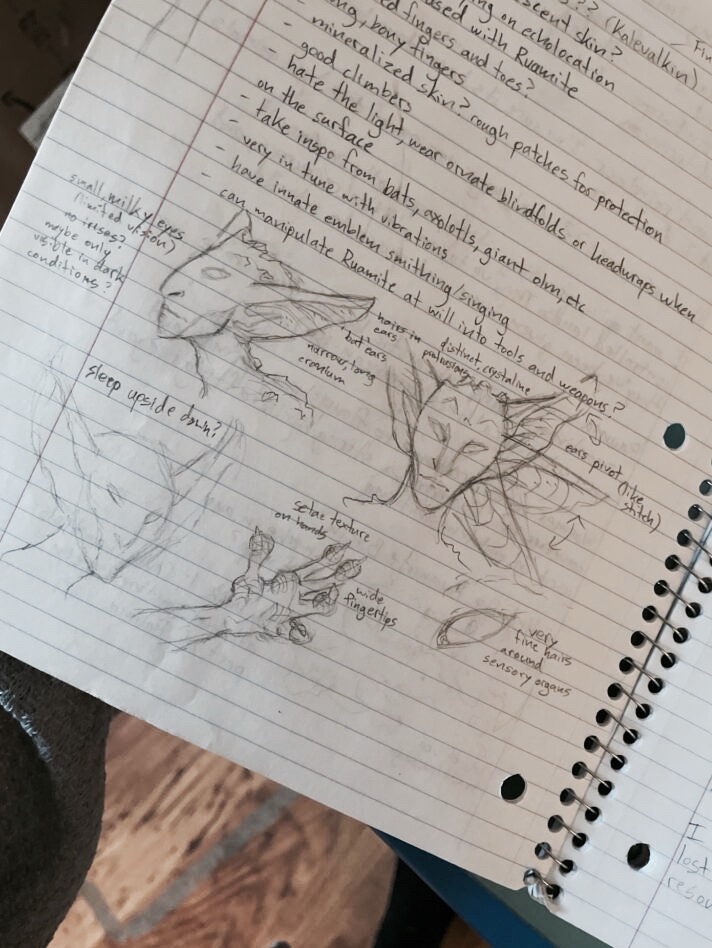 ??? (Kalevalkin)
escent skin?
ing on echolocation
used with Ruamite
ed fingers and toes?
ong, bony fingers
- mineralized skin? rough patches for protection
- good climbers
- hate the light, wear ornate blindfolds or headwraps when
on the surface
- take inspo from bats, axolotls, giant olm, etc
- very in tune with vibrations
- have innate emblem smithing/singing
- can manipulate Ruamite at will into tools and weapons?
small milky eyes
(limited vision)
no irises?
maybe only
visible in dark
conditions?
hairs in
ears
"bat" ears
narrow, long
cranium
distinct, crystaline
protrusions
sleep upside down?
ears pivot (like
stitch)
setae texture
on hands
wide
fingertips
very
fine hairs
around
sensory organs
- Fin
I
lost
resou